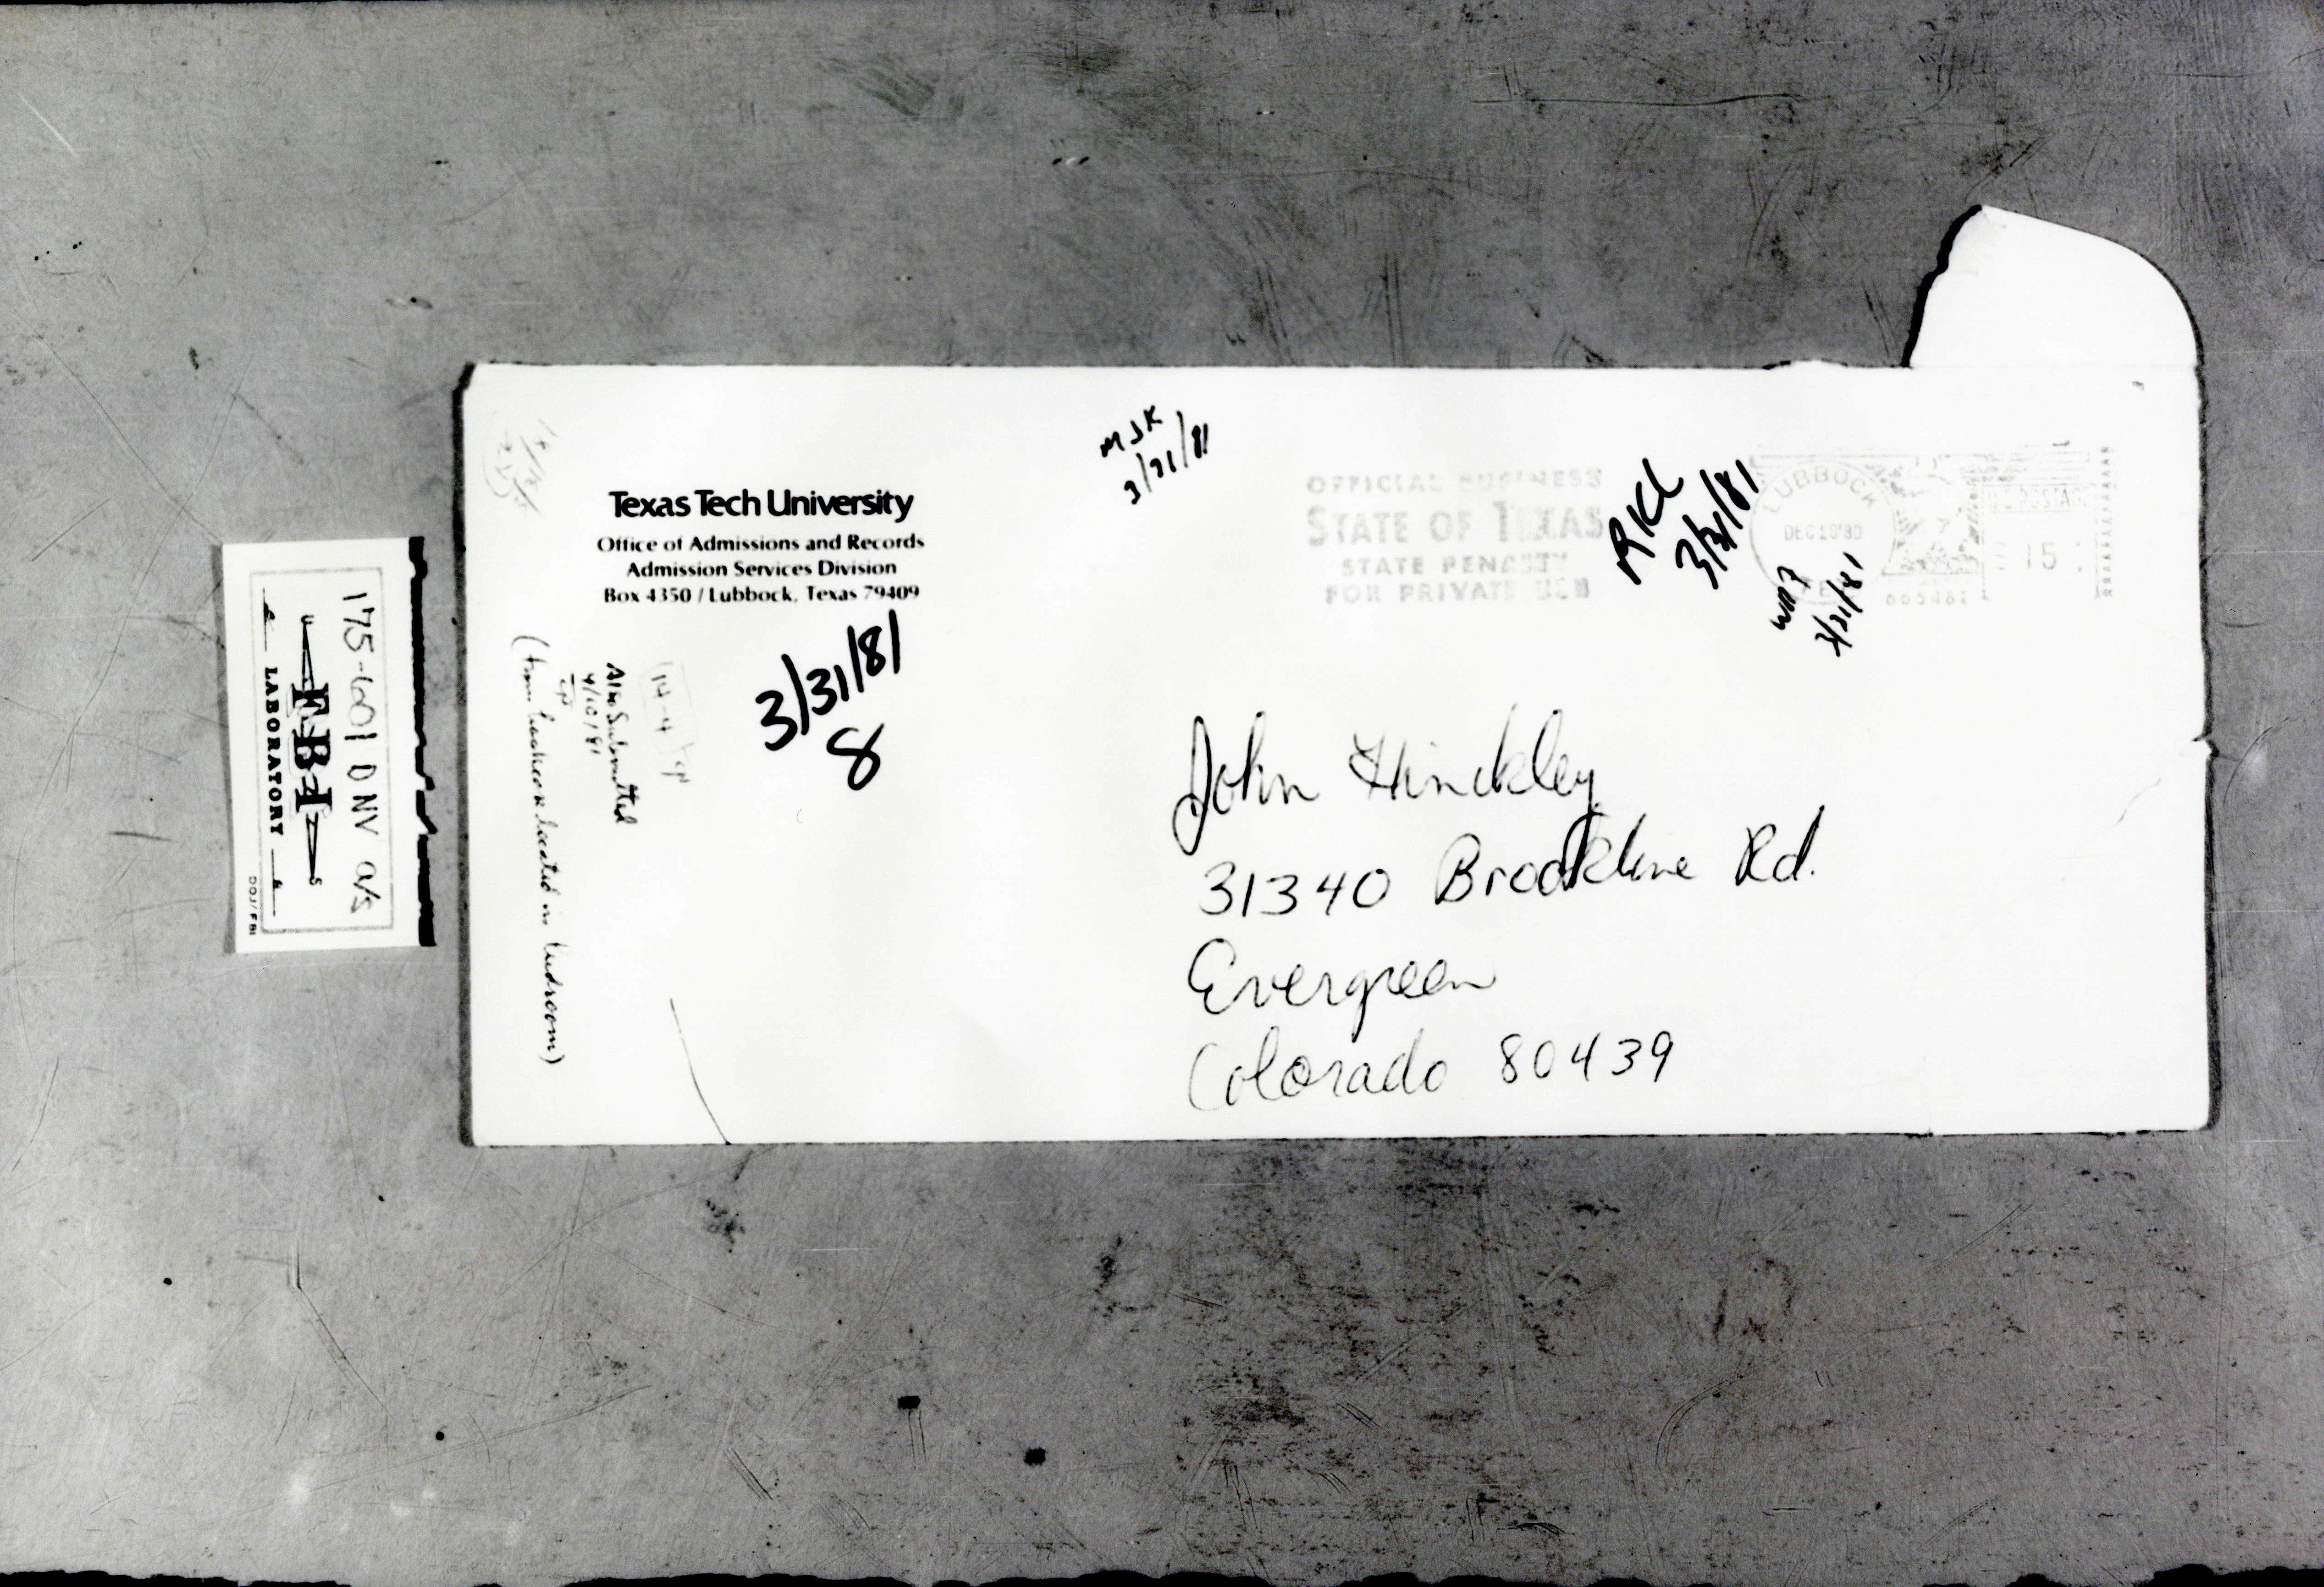 175-601 DNV a/s
FBI
LABORATORY
DOJ/FBI
Texas Tech University
Office of Admissions and Records
Admission Services Division
Box 4350 / Lubbock, Texas 79409
MJK
3/31/81
OFFICIAL BUSINESS
STATE OF TEXAS
STATE PENALTY
FOR PRIVATE USE
3/31/81
LUBBOCK
DEC 18'80
U.S. POSTAGE
15
3/31/81
3/31/81
8
14-4
Also Submitted
4/10/81
(from bookcase located in bedroom)
John Hinckley
31340 Brookline Rd.
Evergreen
Colorado 80439